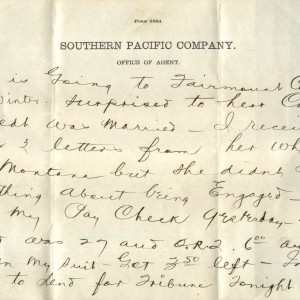 FORM 2584
SOUTHERN PACIFIC COMPANY.
OFFICE OF AGENT.
is Going to Fairmount
Winter. Surprised to hear
was Married - I
2 letters from her
Montana but she didn't
thing About being Engaged -
My Pay Check yesterday -
was 27 and O.R.2. 6.00
My Suit - Got 3.50 left -
to Send for Tribune Tonight